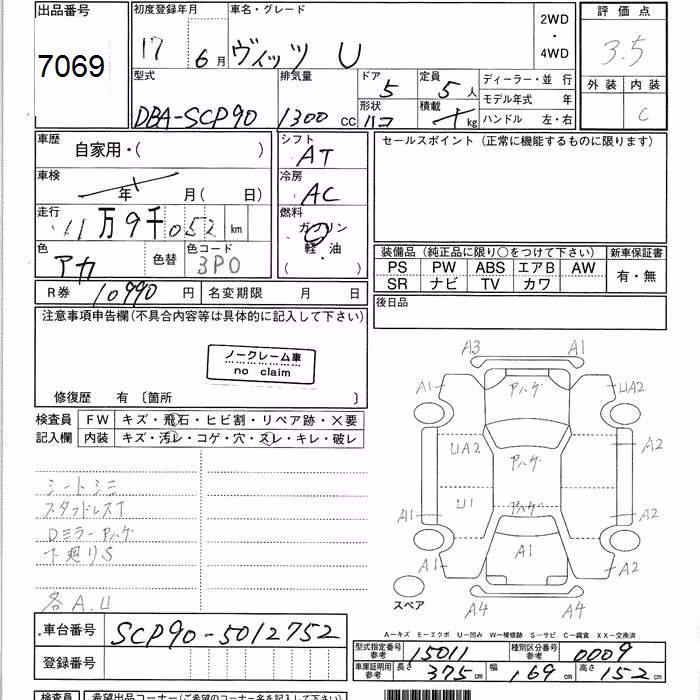 出品番号
7069
初度登録年月
17 6月
車名・グレード
ヴィッツ U
2WD
・
4WD
評価点
3.5
外装 内装
C
型式
DBA-SCP90
排気量
1300 CC
ドア
5
形状
ハコ
定員
5人
積載
kg
ディーラー・並 行
モデル年式 年
ハンドル 左・右
車歴
自家用・( )
車検
年 月( 日)
走行
11万9千052 km
色
アカ
色替
色コード
3P0
シフト
AT
冷房
AC
燃料
ガソリン
軽・油
( )
R券 10990 円
名変期限 月 日
セールスポイント(正常に機能するものに限ります)
装備品(純正品に限り○をつけて下さい)
新車保証書
PS PW ABS エアB AW
SR ナビ TV カワ
有・無
後日品
注意事項申告欄(不具合内容等は具体的に記入して下さい)
ノークレーム車
no claim
修復歴 有 〔箇所 〕
検査員
記入欄
FW キズ・飛石・ヒビ割・リペア跡・×要
内装 キズ・汚レ・コゲ・穴・スレ・キレ・破レ
シートシミ
スタッドレスT
Dミラーアハゲ
下廻りS
各A.U
A3 A1
A1 アハゲ UA2
UA2 アハゲ A2
U1 アハゲ
A1 A1 A2
A1 A2
A4 A4
スペア
A―キズ E―エクボ U―凹み W―補修跡 S―サビ C―腐食 XX―交換済
車台番号 SCP90-5012752
登録番号
型式指定番号
参考
15011
種別区分番号
参考
0009
車庫証明用
参考
長さ 375cm 幅 169cm 高さ 152cm
検査員 希望出品コーナー(ご希望のコーナー名を記入して下さい)